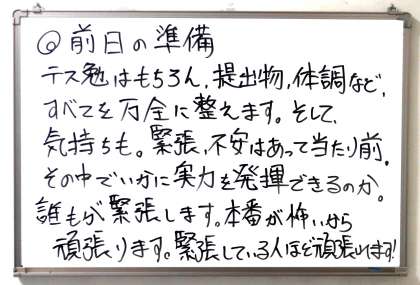 ◎前日の準備
テス勉はもちろん,提出物,体調など,
すべてを万全に整えます。そして、
気持ちも。緊張,不安はあって当たり前。
その中でいかに実力を発揮できるのか。
誰もが緊張します。本番が怖いから
頑張ります。緊張している人ほど頑張ってます!